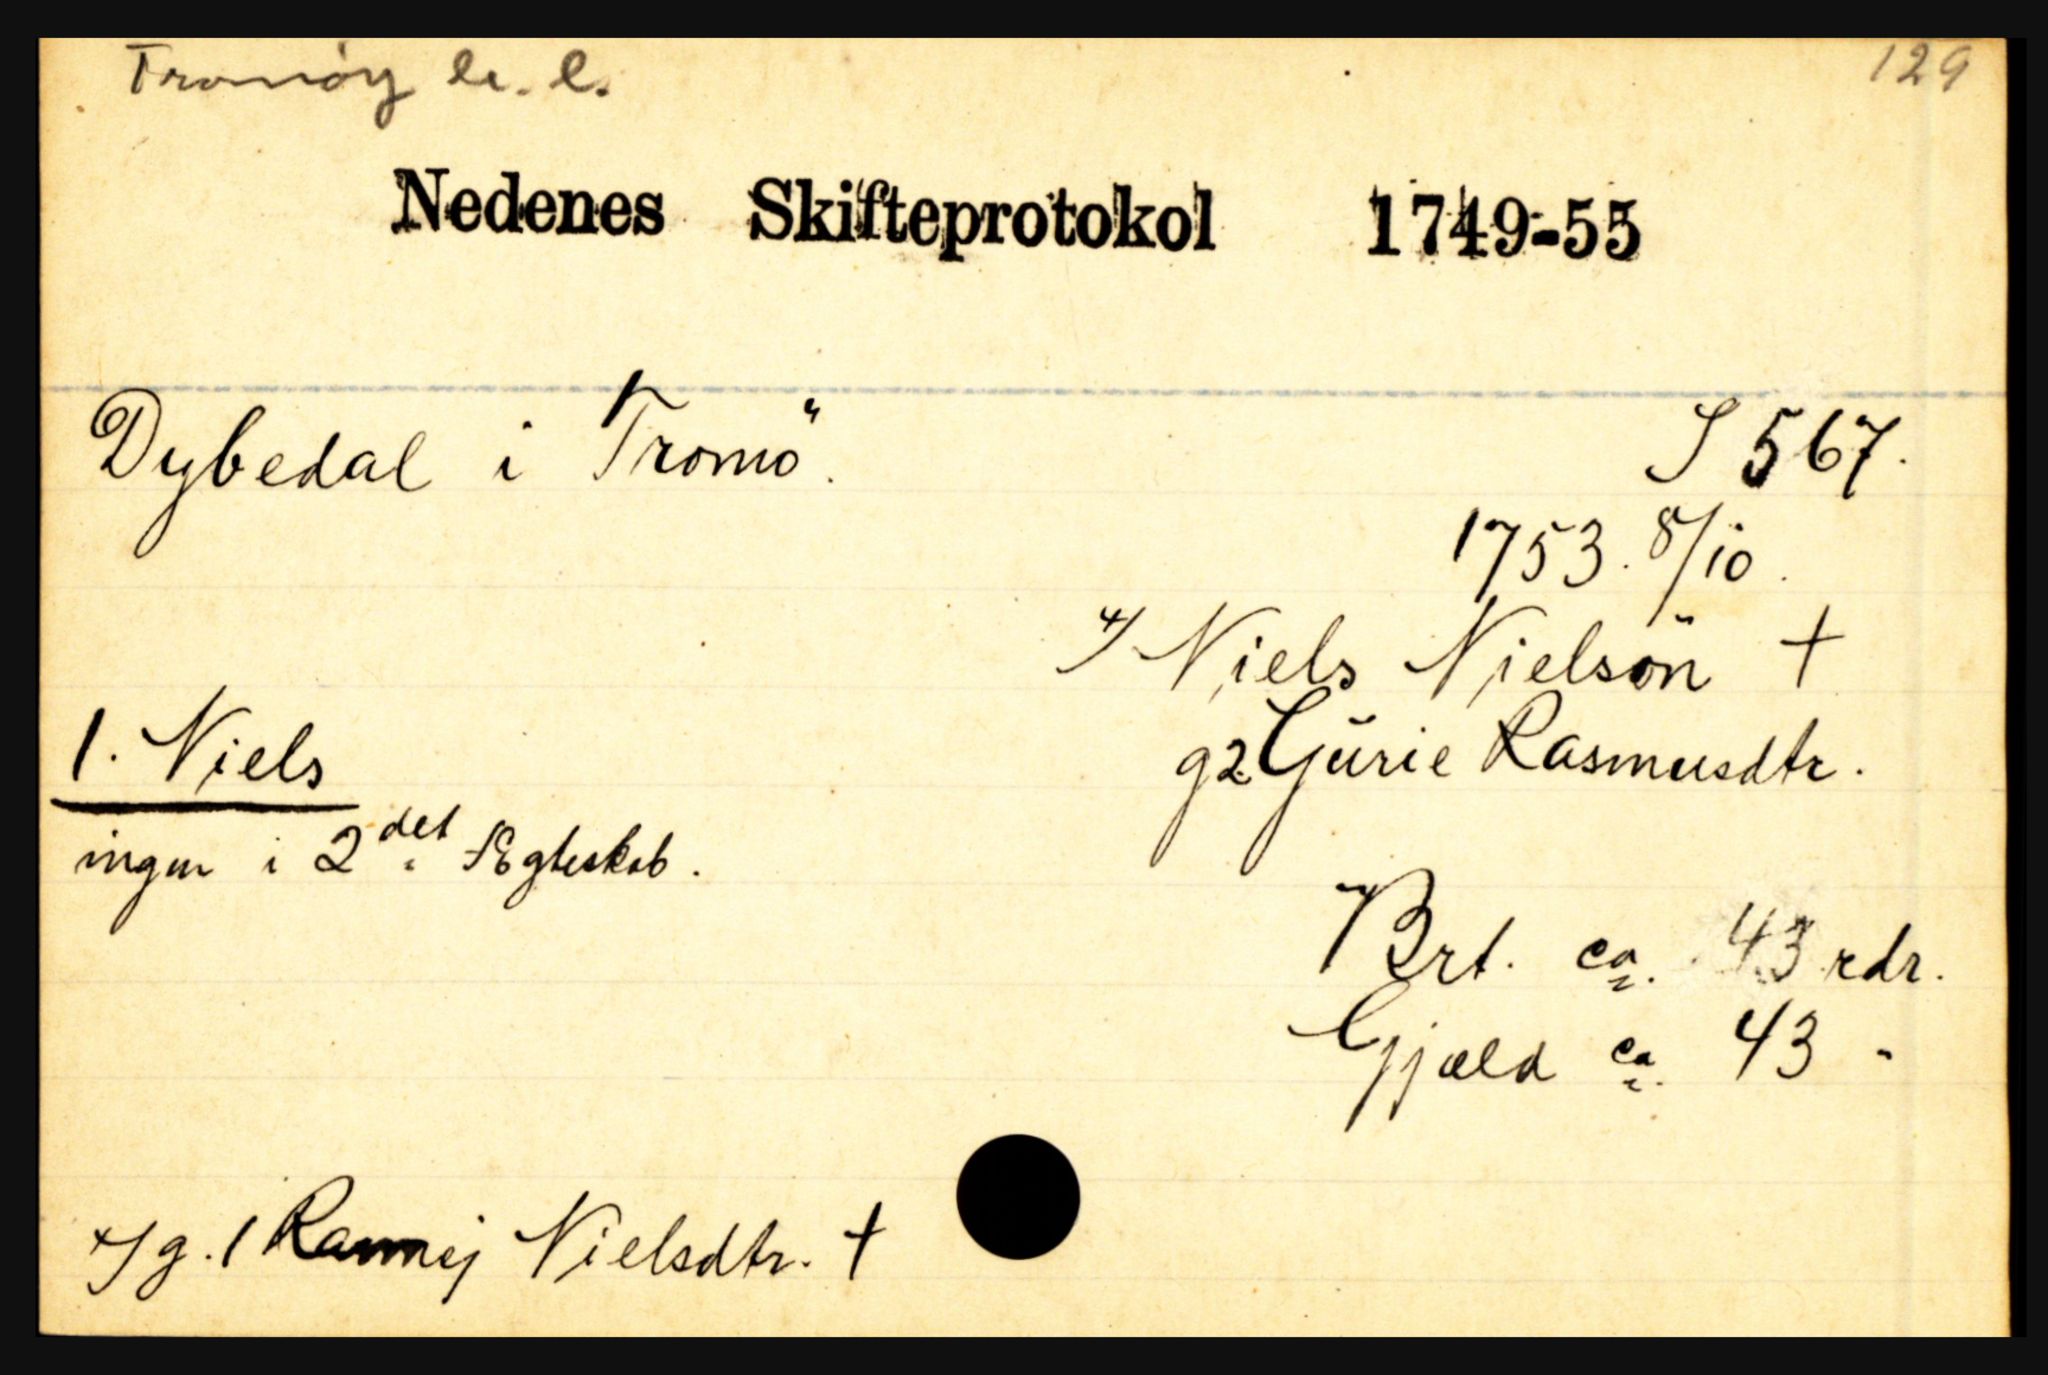 Tromöy l. l.
129
Nedenes Skifteprotokol 1749-55
Dybedal i Tromö.
S 567.
1753. 8/10.
+/ Niels Nielsön +
g2 Gurie Rasmusdtr.
1. Niels
ingen i 2det Ægteskab.
Brt. ca. 43 rdr.
Gjæld ca. 43 -
+/ g. 1 Rannej Nielsdtr. +